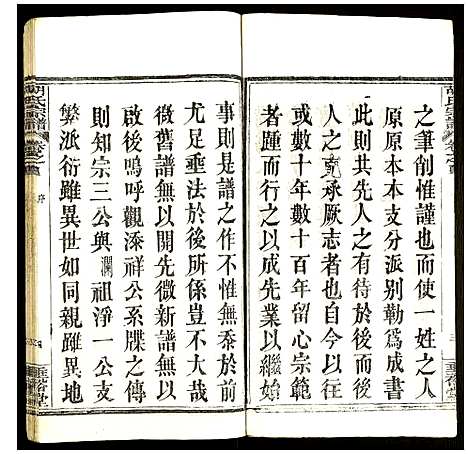 之筆削惟謹也而使一姓之人
原原本本支分派别勒爲成書
此則共先人之有待於後
人之 承厥志者也自今以往
或數十年數百年留心宗範
者踵而行之以成先業以繼始
事則是譜之作不惟無忝於前
尤足垂法於後所係豈不大哉
微舊譜無以開先微新譜無以
啟後嗚呼觀添祥公系牒之傳
則知宗三公與瀾祖淨一公支
繁派衍雖異世如同親雖異地
胡氏宗譜
序